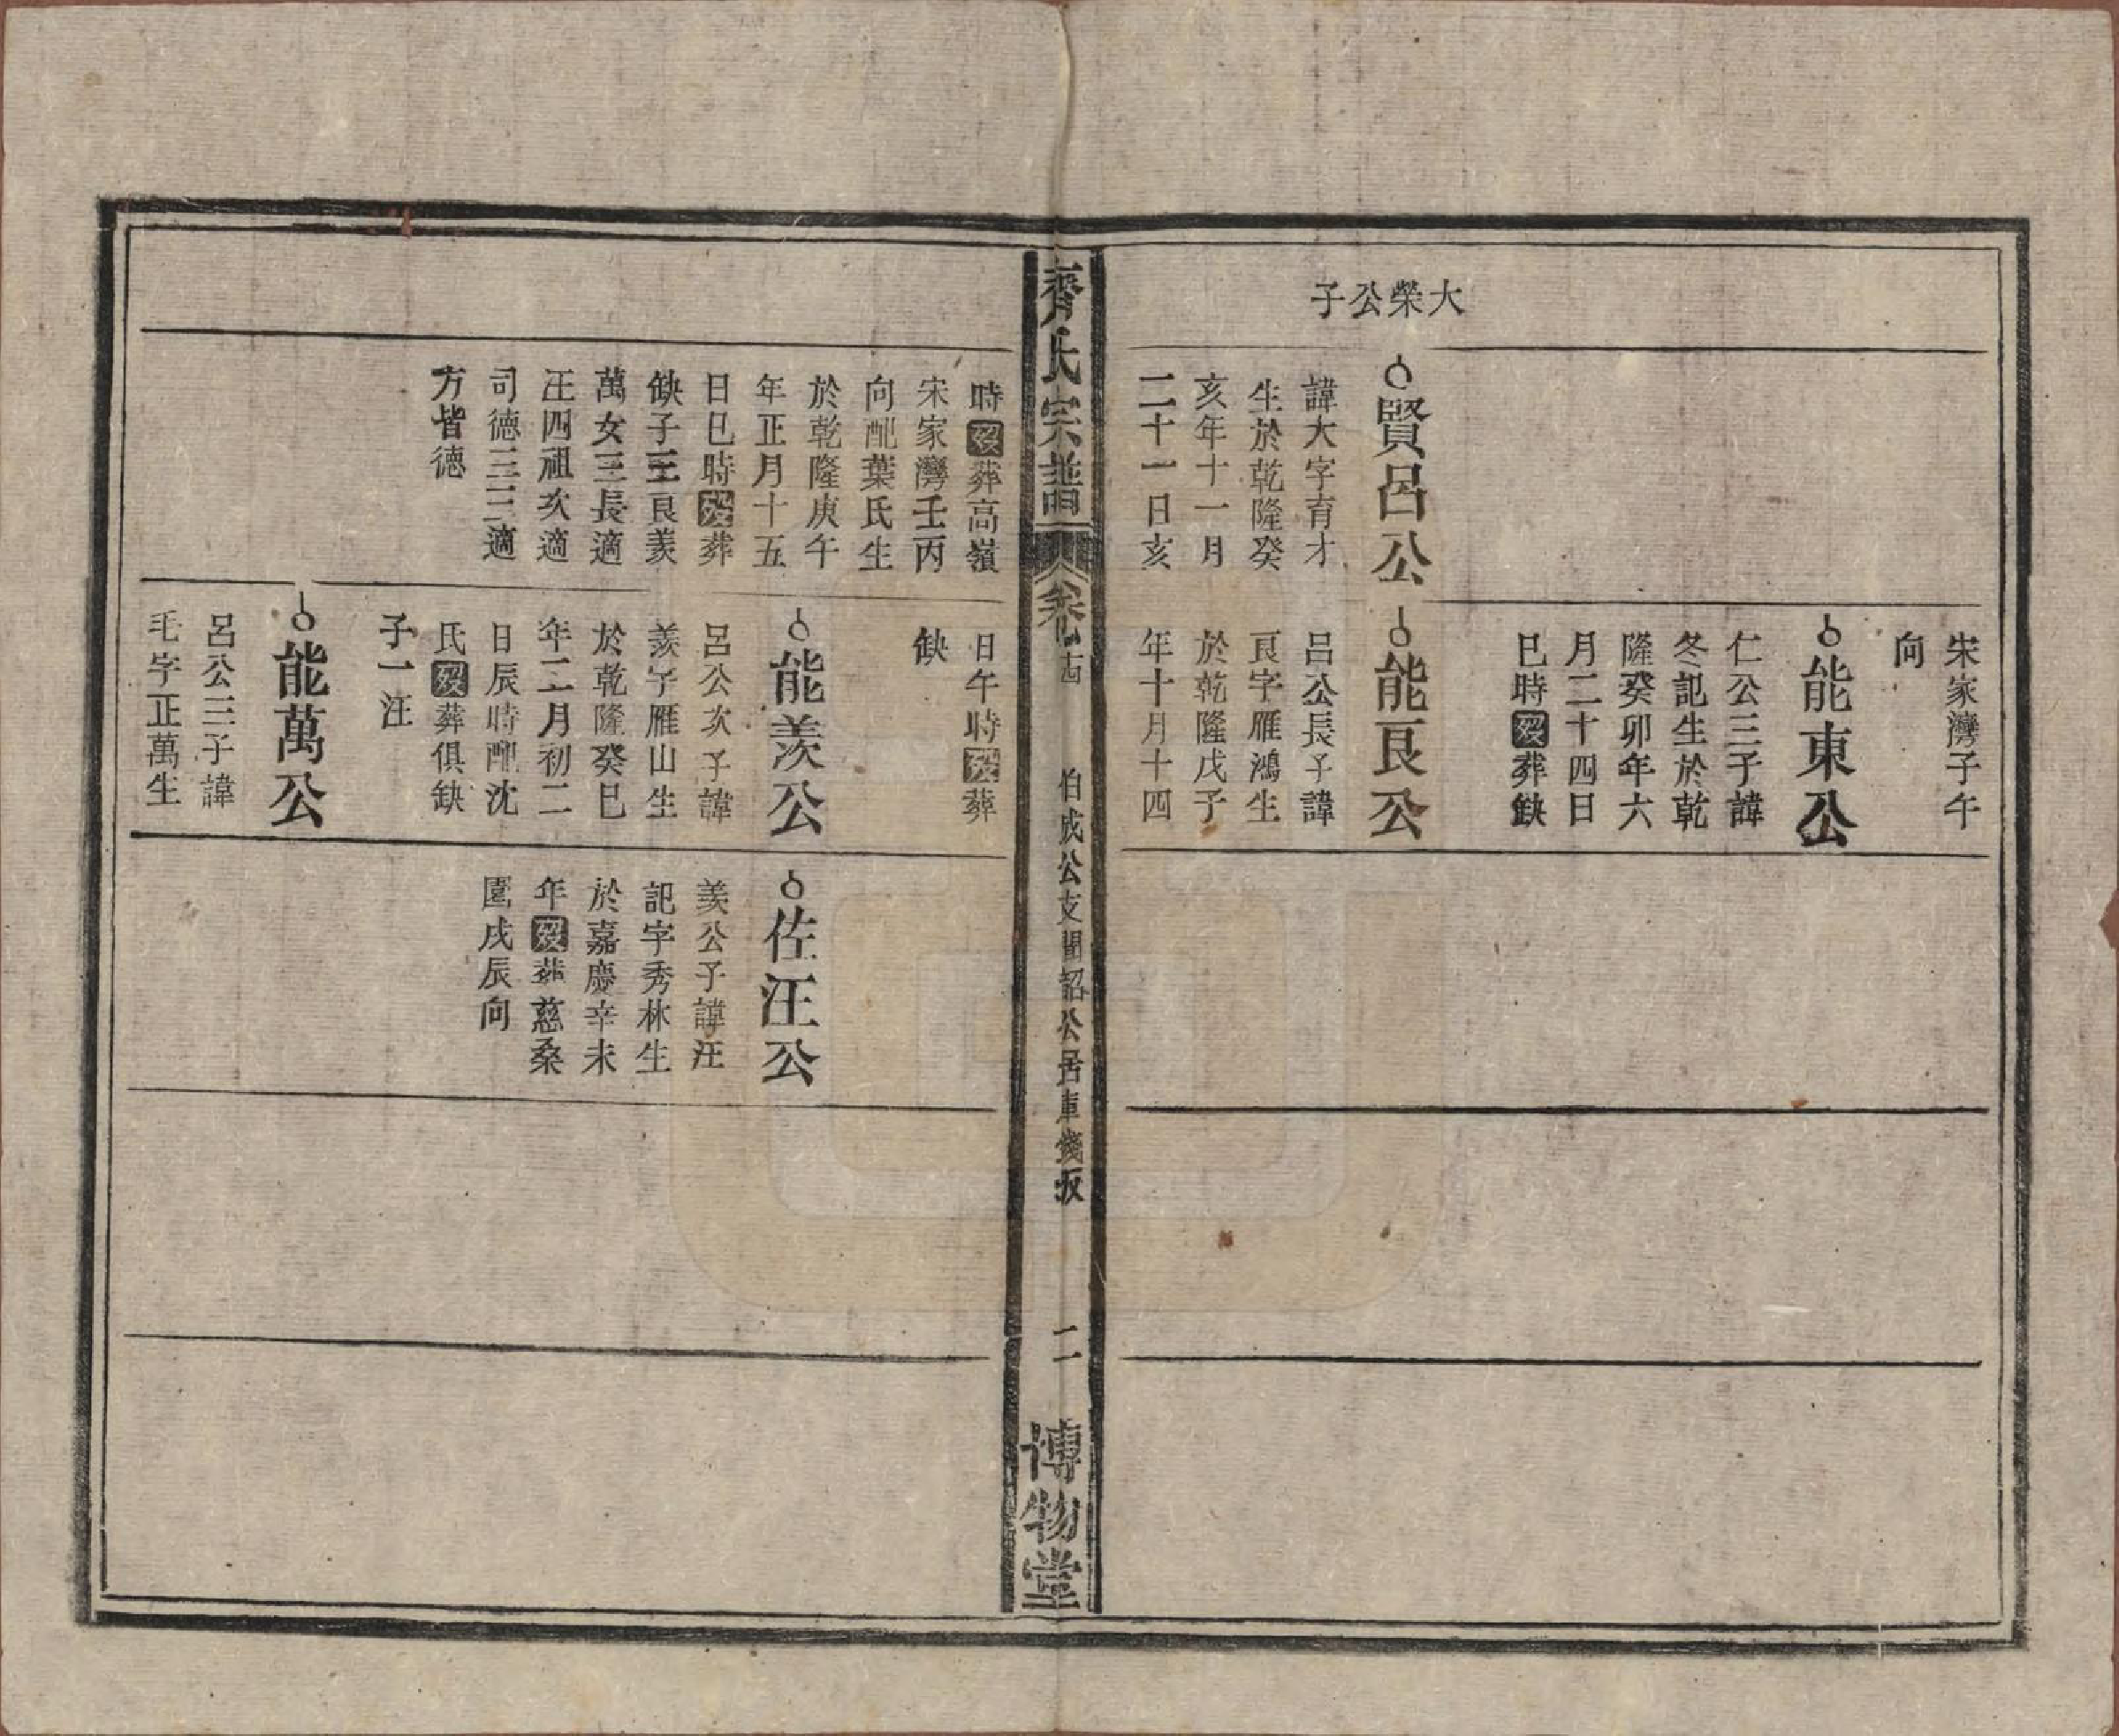 大榮公子
賢呂公
諱大字育才
生於乾隆癸
亥年十一月
二十一日亥
宋家灣子午
向
能東公
仁公三子諱
冬記生於乾
隆癸卯年六
月二十四日
巳時歿葬缺
能良公
呂公長子諱
良字雁鴻生
於乾隆戊子
年十月十四
齊氏宗譜
卷十四
伯成公支聞韶公居車錢坂
二
博物堂
時歿葬高嶺
宋家灣壬丙
向配葉氏生
於乾隆庚午
年正月十五
日巳時歿葬
缺子三良羨
萬女三長適
汪四祖次適
司德三三適
方皆德
日午時歿葬
缺
能羨公
呂公次子諱
羨字雁山生
於乾隆癸巳
年二月初二
日辰時配沈
氏歿葬俱缺
子一汪
能萬公
呂公三子諱
毛字正萬生
佐汪公
羨公子諱汪
記字秀林生
於嘉慶辛未
年歿葬慈桑
園戌辰向